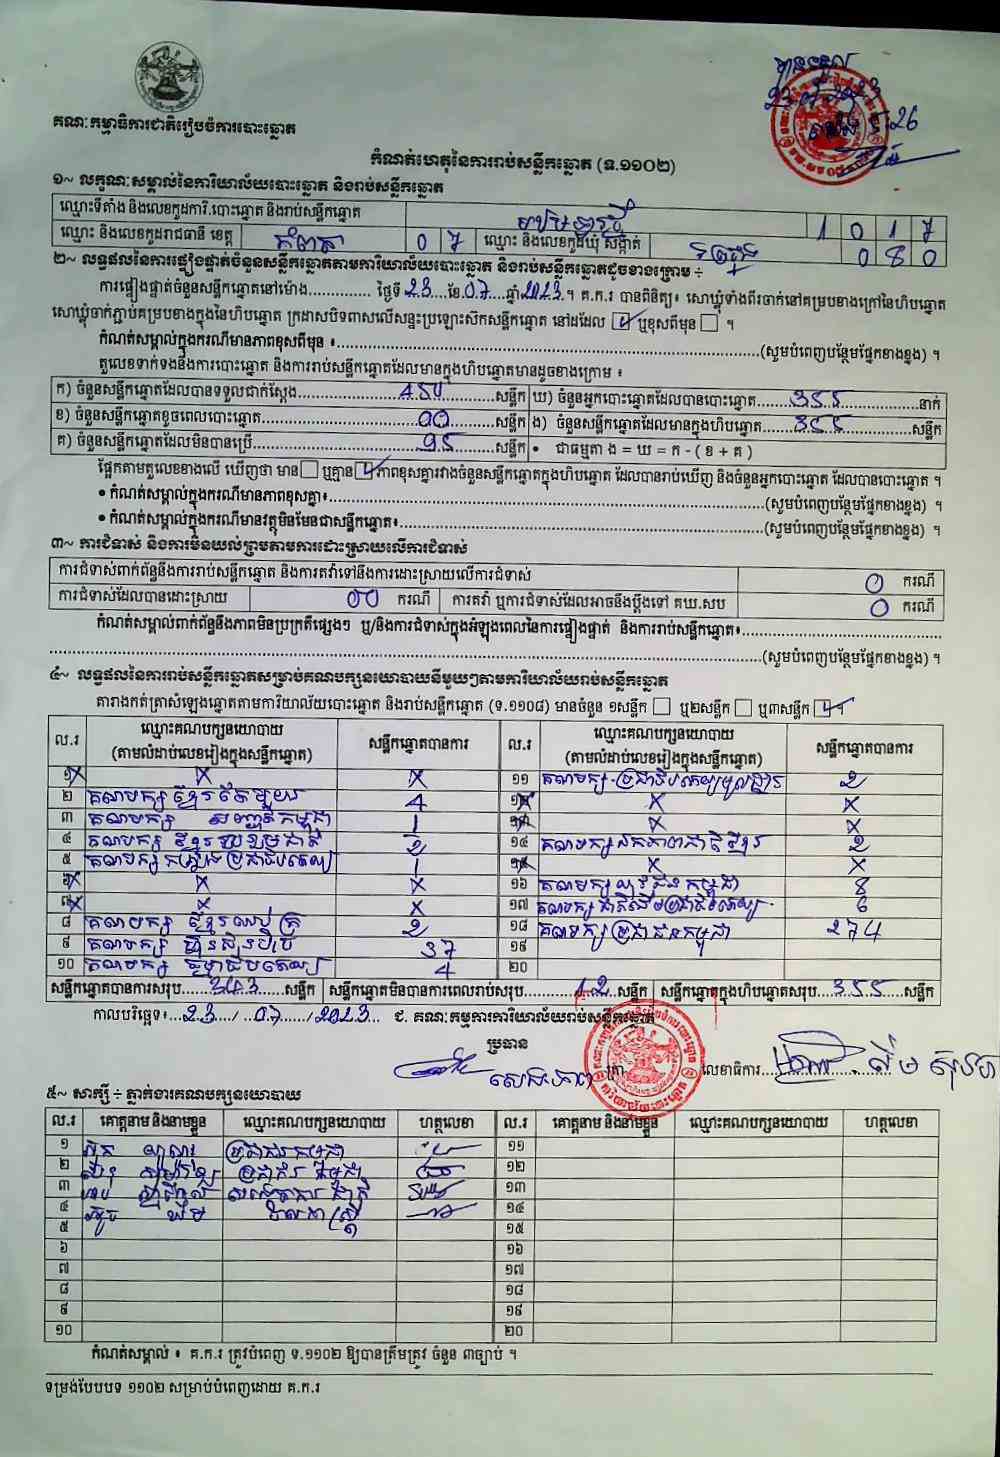 គណៈកម្មាធិការជាតិរៀបចំការបោះឆ្នោត
កំណត់ហេតុនៃការរាប់សន្លឹកឆ្នោត (ទ.១១០២)
១~ លក្ខណៈសម្គាល់នៃការិយាល័យបោះឆ្នោត និងរាប់សន្លឹកឆ្នោត
ឈ្មោះទីតាំង និងលេខកូដការិ.បោះឆ្នោត និងរាប់សន្លឹកឆ្នោត 1 0 1 7
ឈ្មោះ និងលេខកូដរាជធានី ខេត្ត កំពត 0 7 ឈ្មោះ និងលេខកូដឃុំ សង្កាត់ 0 8 0
២~ លទ្ធផលនៃការផ្ទៀងផ្ទាត់ចំនួនសន្លឹកឆ្នោតតាមការិយាល័យបោះឆ្នោត និងរាប់សន្លឹកឆ្នោតដូចខាងក្រោម ÷
ការផ្ទៀងផ្ទាត់ចំនួនសន្លឹកឆ្នោតនៅម៉ោង.............. ថ្ងៃទី 23 ខែ 07 ឆ្នាំ 2023 ។ គ.ក.រ បានពិនិត្យ៖ សោឃ្លុំទាំងពីរចាក់នៅគម្របខាងក្រៅនៃហិបឆ្នោត
សោឃ្លុំចាក់ភ្ជាប់គម្របខាងក្នុងនៃហិបឆ្នោត ក្រដាសបិទពាសលើសន្ទះប្រឡោះស៊កសន្លឹកឆ្នោត នៅដដែល ☑ ឬខុសពីមុន ☐ ។
កំណត់សម្គាល់ក្នុងករណីមានភាពខុសពីមុន ៖..........(សូមបំពេញបន្ថែមផ្នែកខាងខ្នង) ។
តួលេខទាក់ទងនឹងការបោះឆ្នោត និងការរាប់សន្លឹកឆ្នោតដែលមានក្នុងហិបឆ្នោតមានដូចខាងក្រោម ៖
ក) ចំនួនសន្លឹកឆ្នោតដែលបានទទួលជាក់ស្តែង 450 សន្លឹក ឃ) ចំនួនអ្នកបោះឆ្នោតដែលបានបោះឆ្នោត 355 នាក់
ខ) ចំនួនសន្លឹកឆ្នោតខូចពេលបោះឆ្នោត 00 សន្លឹក ង) ចំនួនសន្លឹកឆ្នោតដែលមានក្នុងហិបឆ្នោត 355 សន្លឹក
គ) ចំនួនសន្លឹកឆ្នោតដែលមិនបានប្រើ 95 សន្លឹក • ជាធម្មតា ង = ឃ = ក - ( ខ + គ )
ផ្អែកតាមតួលេខខាងលើ ឃើញថា មាន ☐ ឬគ្មាន ☑ ភាពខុសគ្នារវាងចំនួនសន្លឹកឆ្នោតក្នុងហិបឆ្នោត ដែលបានរាប់ឃើញ និងចំនួនអ្នកបោះឆ្នោត ដែលបានបោះឆ្នោត ។
• កំណត់សម្គាល់ក្នុងករណីមានភាពខុសគ្នា៖..........(សូមបំពេញបន្ថែមផ្នែកខាងខ្នង) ។
• កំណត់សម្គាល់ក្នុងករណីមានវត្ថុមិនមែនជាសន្លឹកឆ្នោត៖..........(សូមបំពេញបន្ថែមផ្នែកខាងខ្នង) ។
៣~ ការជំទាស់ និងការមិនយល់ព្រមតាមការដោះស្រាយលើការជំទាស់
ការជំទាស់ពាក់ព័ន្ធនឹងការរាប់សន្លឹកឆ្នោត និងការតវ៉ាទៅនឹងការដោះស្រាយលើការជំទាស់ 0 ករណី
ការជំទាស់ដែលបានដោះស្រាយ 00 ករណី ការតវ៉ា ឬការជំទាស់ដែលអាចនឹងប្តឹងទៅ គឃ.សប 0 ករណី
កំណត់សម្គាល់ពាក់ព័ន្ធនឹងភាពមិនប្រក្រតីផ្សេងៗ ឬ/និងការជំទាស់ក្នុងអំឡុងពេលនៃការផ្ទៀងផ្ទាត់ និងការរាប់សន្លឹកឆ្នោត៖..........
..........(សូមបំពេញបន្ថែមផ្នែកខាងខ្នង) ។
៤~ លទ្ធផលនៃការរាប់សន្លឹកឆ្នោតសម្រាប់គណបក្សនយោបាយនីមួយៗតាមការិយាល័យរាប់សន្លឹកឆ្នោត
តារាងកត់ត្រាសំឡេងឆ្នោតតាមការិយាល័យបោះឆ្នោត និងរាប់សន្លឹកឆ្នោត (ទ.១១០៨) មានចំនួន ១សន្លឹក ☐ ឬ២សន្លឹក ☐ ឬ៣សន្លឹក ☑ ។
ល.រ ឈ្មោះគណបក្សនយោបាយ (តាមលំដាប់លេខរៀងក្នុងសន្លឹកឆ្នោត) សន្លឹកឆ្នោតបានការ ល.រ ឈ្មោះគណបក្សនយោបាយ (តាមលំដាប់លេខរៀងក្នុងសន្លឹកឆ្នោត) សន្លឹកឆ្នោតបានការ
១ X X ១១ គណបក្សប្រជាធិបតេយ្យមូលដ្ឋាន 2
២ គណបក្សខ្មែរតែមួយ 4 ១២ X X
៣ គណបក្ស សញ្ជាតិកម្ពុជា 1 ១៣ X X
៤ គណបក្ស ខ្មែររួបរួមជាតិ 2 ១៤ គណបក្សឯកភាពជាតិខ្មែរ 2
៥ គណបក្សកម្លាំងប្រជាធិបតេយ្យ 1 ១៥ X X
៦ X X ១៦ គណបក្សយុវជនកម្ពុជា 8
៧ X X ១៧ គណបក្ស 6
៨ គណបក្ស ខ្មែរ 2 ១៨ គណបក្សប្រជាជនកម្ពុជា 274
៩ គណបក្ស ហ៊្វុនស៊ិនប៉ិច 37 ១៩
១០ គណបក្ស ធម្មាធិបតេយ្យ 4 ២០
សន្លឹកឆ្នោតបានការសរុប 343 សន្លឹក សន្លឹកឆ្នោតមិនបានការពេលរាប់សរុប 12 សន្លឹក សន្លឹកឆ្នោតក្នុងហិបឆ្នោតសរុប 355 សន្លឹក
កាលបរិច្ឆេទ៖ 23 / 07 / 2023 ជ. គណៈកម្មការការិយាល័យរាប់សន្លឹកឆ្នោត
ប្រធាន
លេខាធិការ
៥~ សាក្សី ÷ ភ្នាក់ងារគណបក្សនយោបាយ
ល.រ គោត្តនាម និងនាមខ្លួន ឈ្មោះគណបក្សនយោបាយ ហត្ថលេខា ល.រ គោត្តនាម និងនាមខ្លួន ឈ្មោះគណបក្សនយោបាយ ហត្ថលេខា
១ ប្រជាជនកម្ពុជា ១១
២ ប្រជាជនកម្ពុជា ១២
៣ ១៣
៤ ១៤
៥ ១៥
៦ ១៦
៧ ១៧
៨ ១៨
៩ ១៩
១០ ២០
កំណត់សម្គាល់ ៖ គ.ក.រ ត្រូវបំពេញ ទ.១១០២ ឱ្យបានត្រឹមត្រូវ ចំនួន ៣ច្បាប់ ។
ទម្រង់បែបបទ ១១០២ សម្រាប់បំពេញដោយ គ.ក.រ